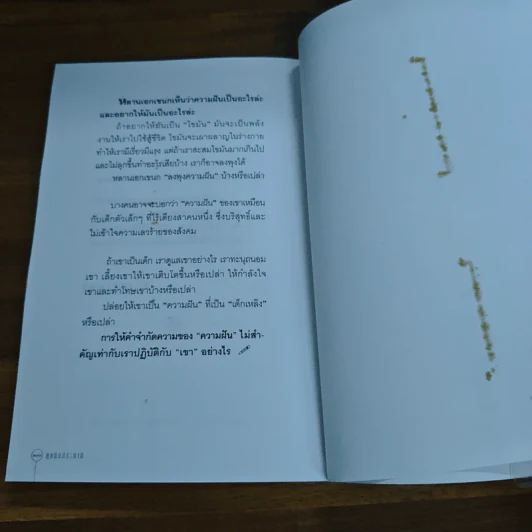 ไร้ลานเอกเขนกเห็นว่าความฝันเป็นอะไรล่ะ
และอยากให้มันเป็นอะไรล่ะ
ถ้าอยากให้มันเป็น "ไขมัน" มันจะเป็นพลัง
งานให้เราไปใช้สู้ชีวิต ไขมันจะเผาผลาญในร่างกาย
ทำให้เรามีเรี่ยวมีแรง แต่ถ้าเราสะสมไขมันมากเกินไป
และไม่ลุกขึ้นทำอะไรเสียบ้าง เราก็อาจลงพุงได้
หลานเอกเขนก "ลงพุงความฝัน" บ้างหรือเปล่า
บางคนอาจจะบอกว่า "ความฝัน" ของเขาเหมือน
กับเด็กตัวเล็กๆ ที่ไร้เดียงสาคนหนึ่ง ซึ่งบริสุทธิ์และ
ไม่เข้าใจความเลวร้ายของสังคม
ถ้าเขาเป็นเด็ก เราดูแลเขาอย่างไร เราทะนุถนอม
เขา เลี้ยงเขาให้เขาเติบโตขึ้นหรือเปล่า ให้กำลังใจ
เขาและทำโทษเขาบ้างหรือเปล่า
ปล่อยให้เขาเป็น "ความฝัน" ที่เป็น "เด็กเหลิง"
หรือเปล่า
การให้คำจำกัดความของ "ความฝัน" ไม่สำ-
คัญเท่ากับเราปฏิบัติกับ "เขา" อย่างไร